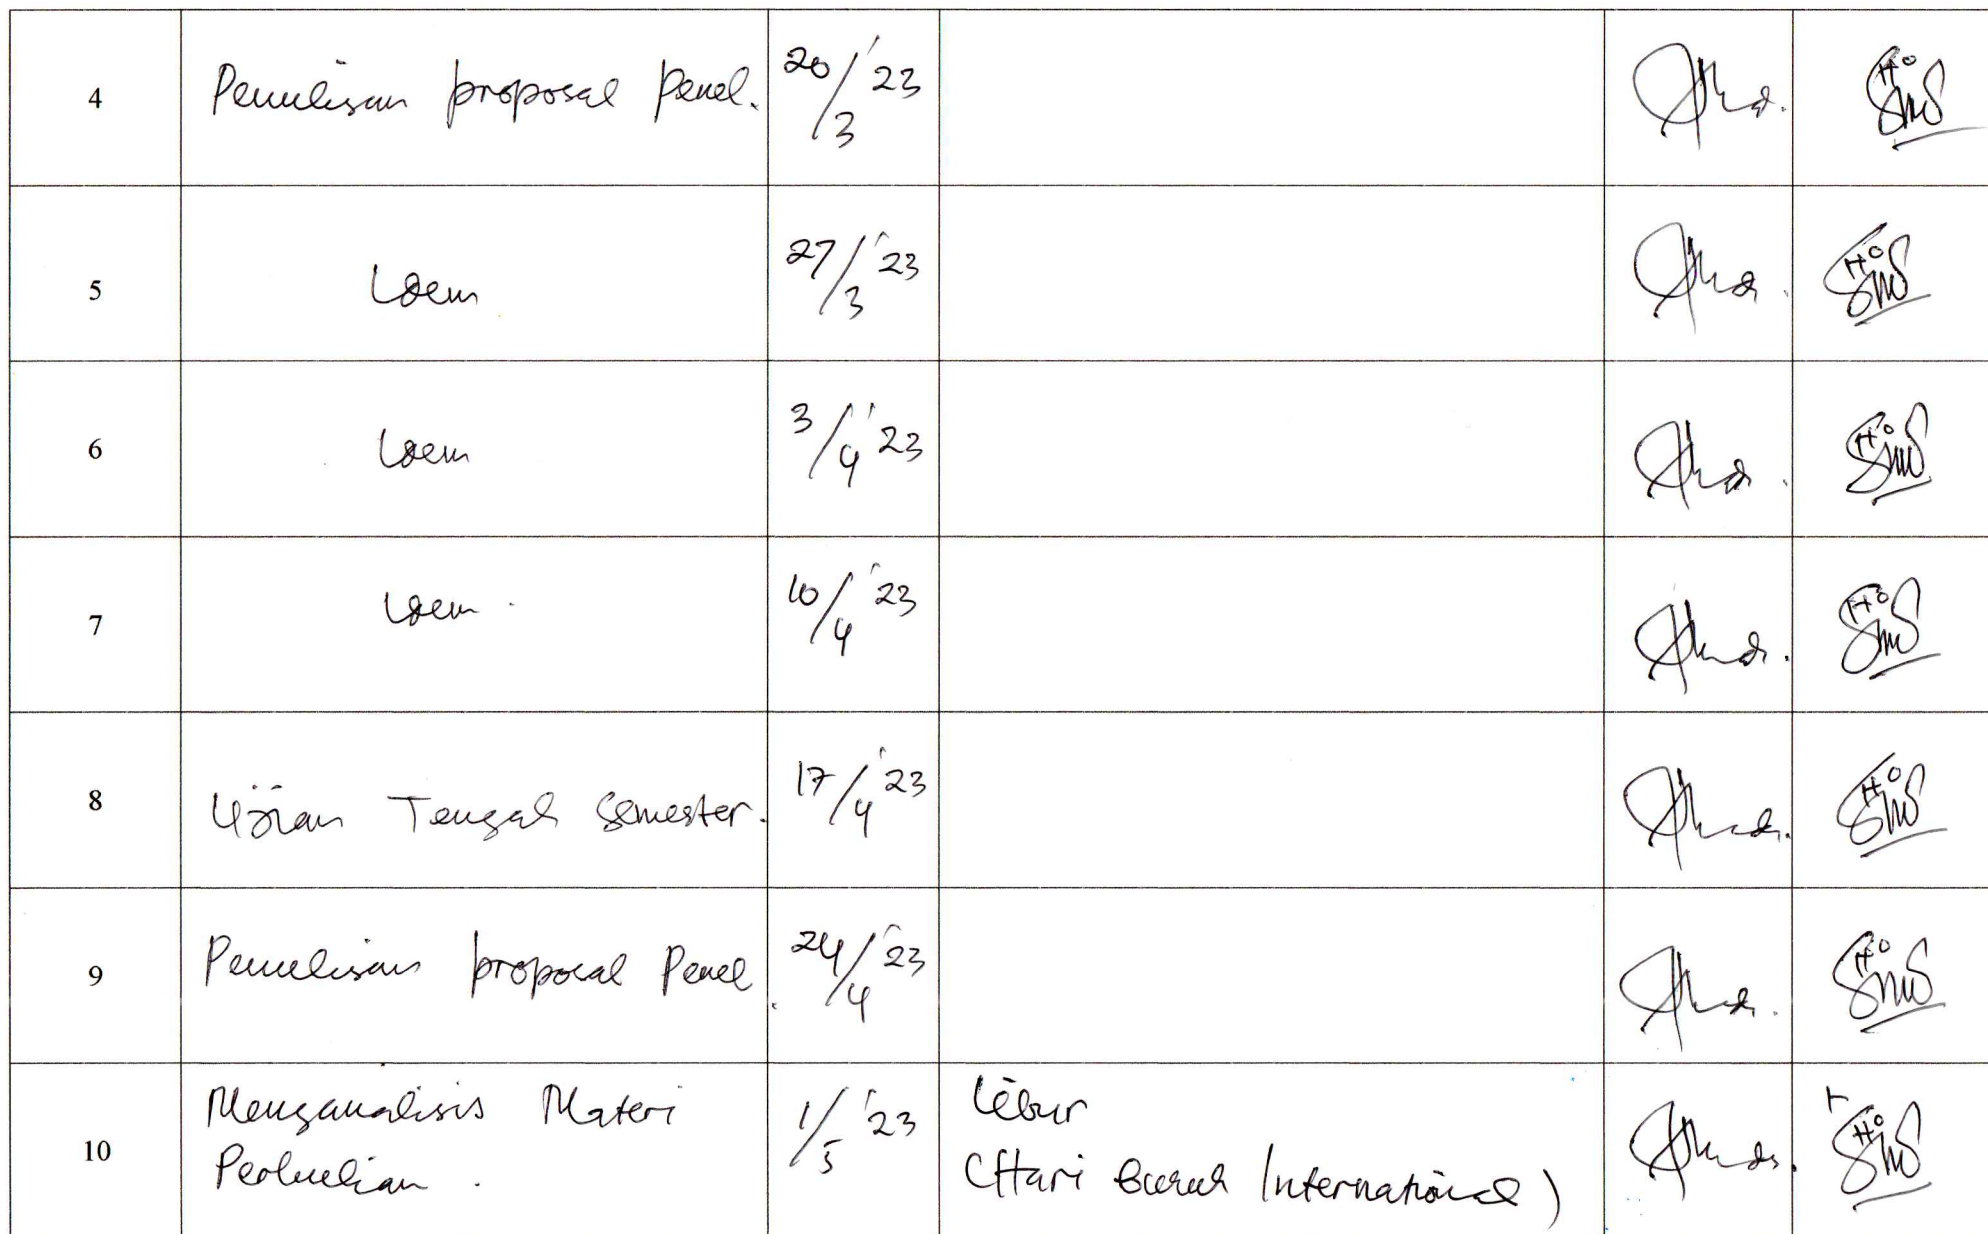 4 Penulisan proposal Penel. 20/3 '23
5 Idem 27/3 '23
6 Idem 3/4 '23
7 Idem 10/4 '23
8 Ujian Tengah Semester. 17/4 '23
9 Penulisan proposal Penel. 24/4 '23
10 Menganalisis Materi 1/5 '23 Libur
(Hari Buruh International)